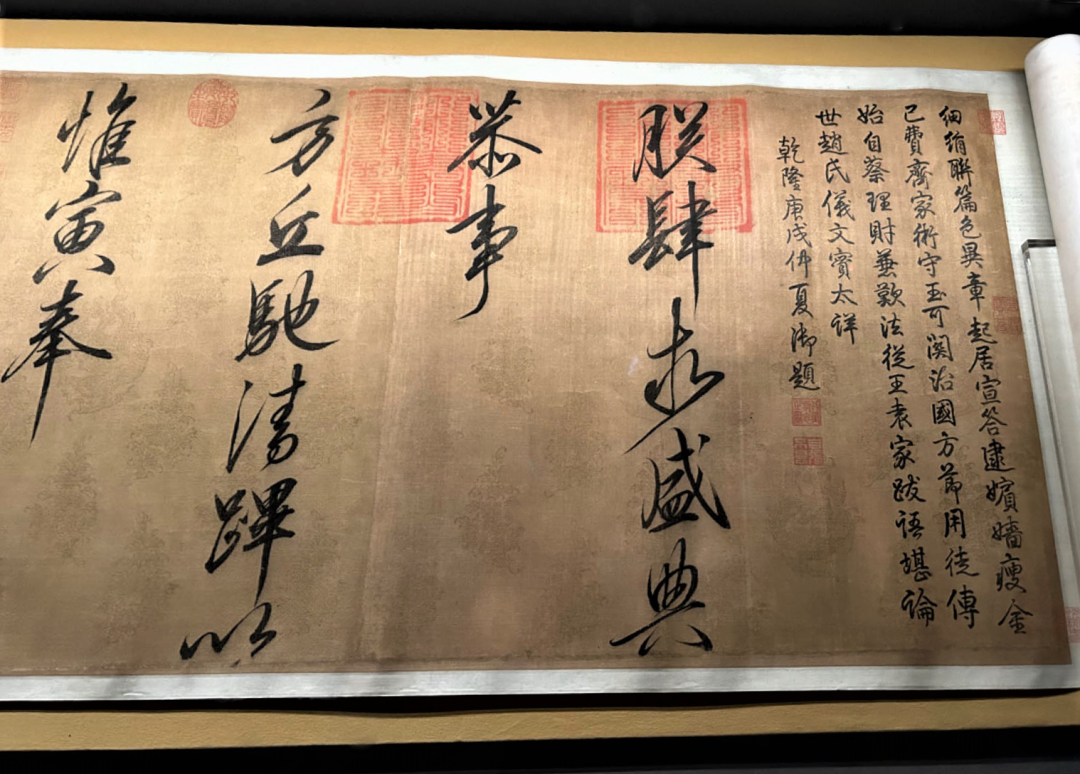 細絹聯篇色異章起居宣答逮嬪嬙瘦金
已費齊家術守玉可關治國方節用徒傳
始自蔡理財兼歎法從王表家跋語堪論
世趙氏儀文實太詳
乾隆庚戌仲夏御題
朕肆求盛典
恭事
方丘馳清蹕以
惟寅奉